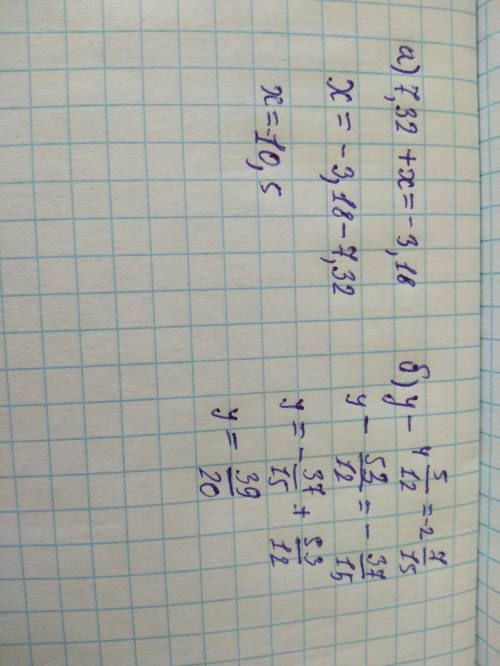 а) 7,32 + x = -3,18
x = -3,18 - 7,32
x = -10,5
б) y - 4 5/12 = -2 7/15
y - 53/12 = - 37/15
y = - 37/15 + 53/12
y = 39/20